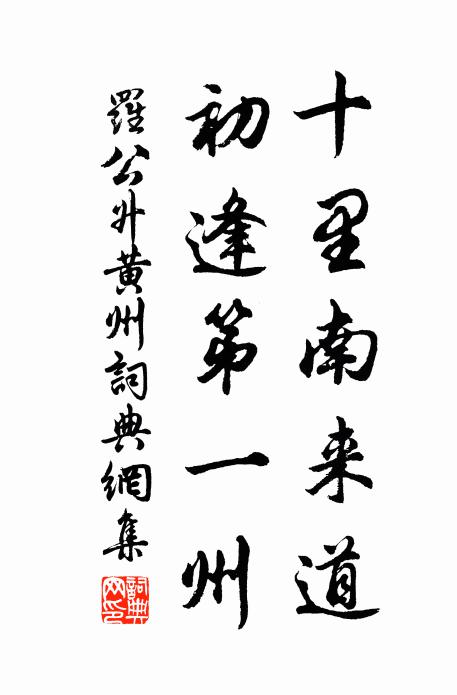 十里南来道
初逢第一州
羅公升黄州詞典網集
詞典網印